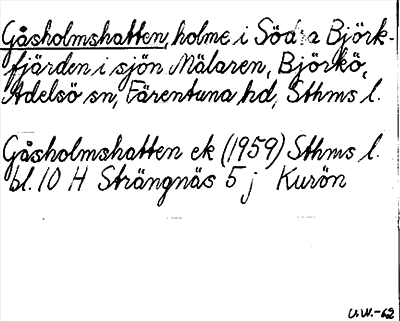 Gåsholmshatten, holme i Södra Björk-
fjärden i sjön Mälaren, Björkö,
Adelsö sn, Färentuna hd, Sthms l.
Gåsholmshatten ek (1959) Sthms l.
bl. 10 H Strängnäs 5 j Kurön
U.W.-62